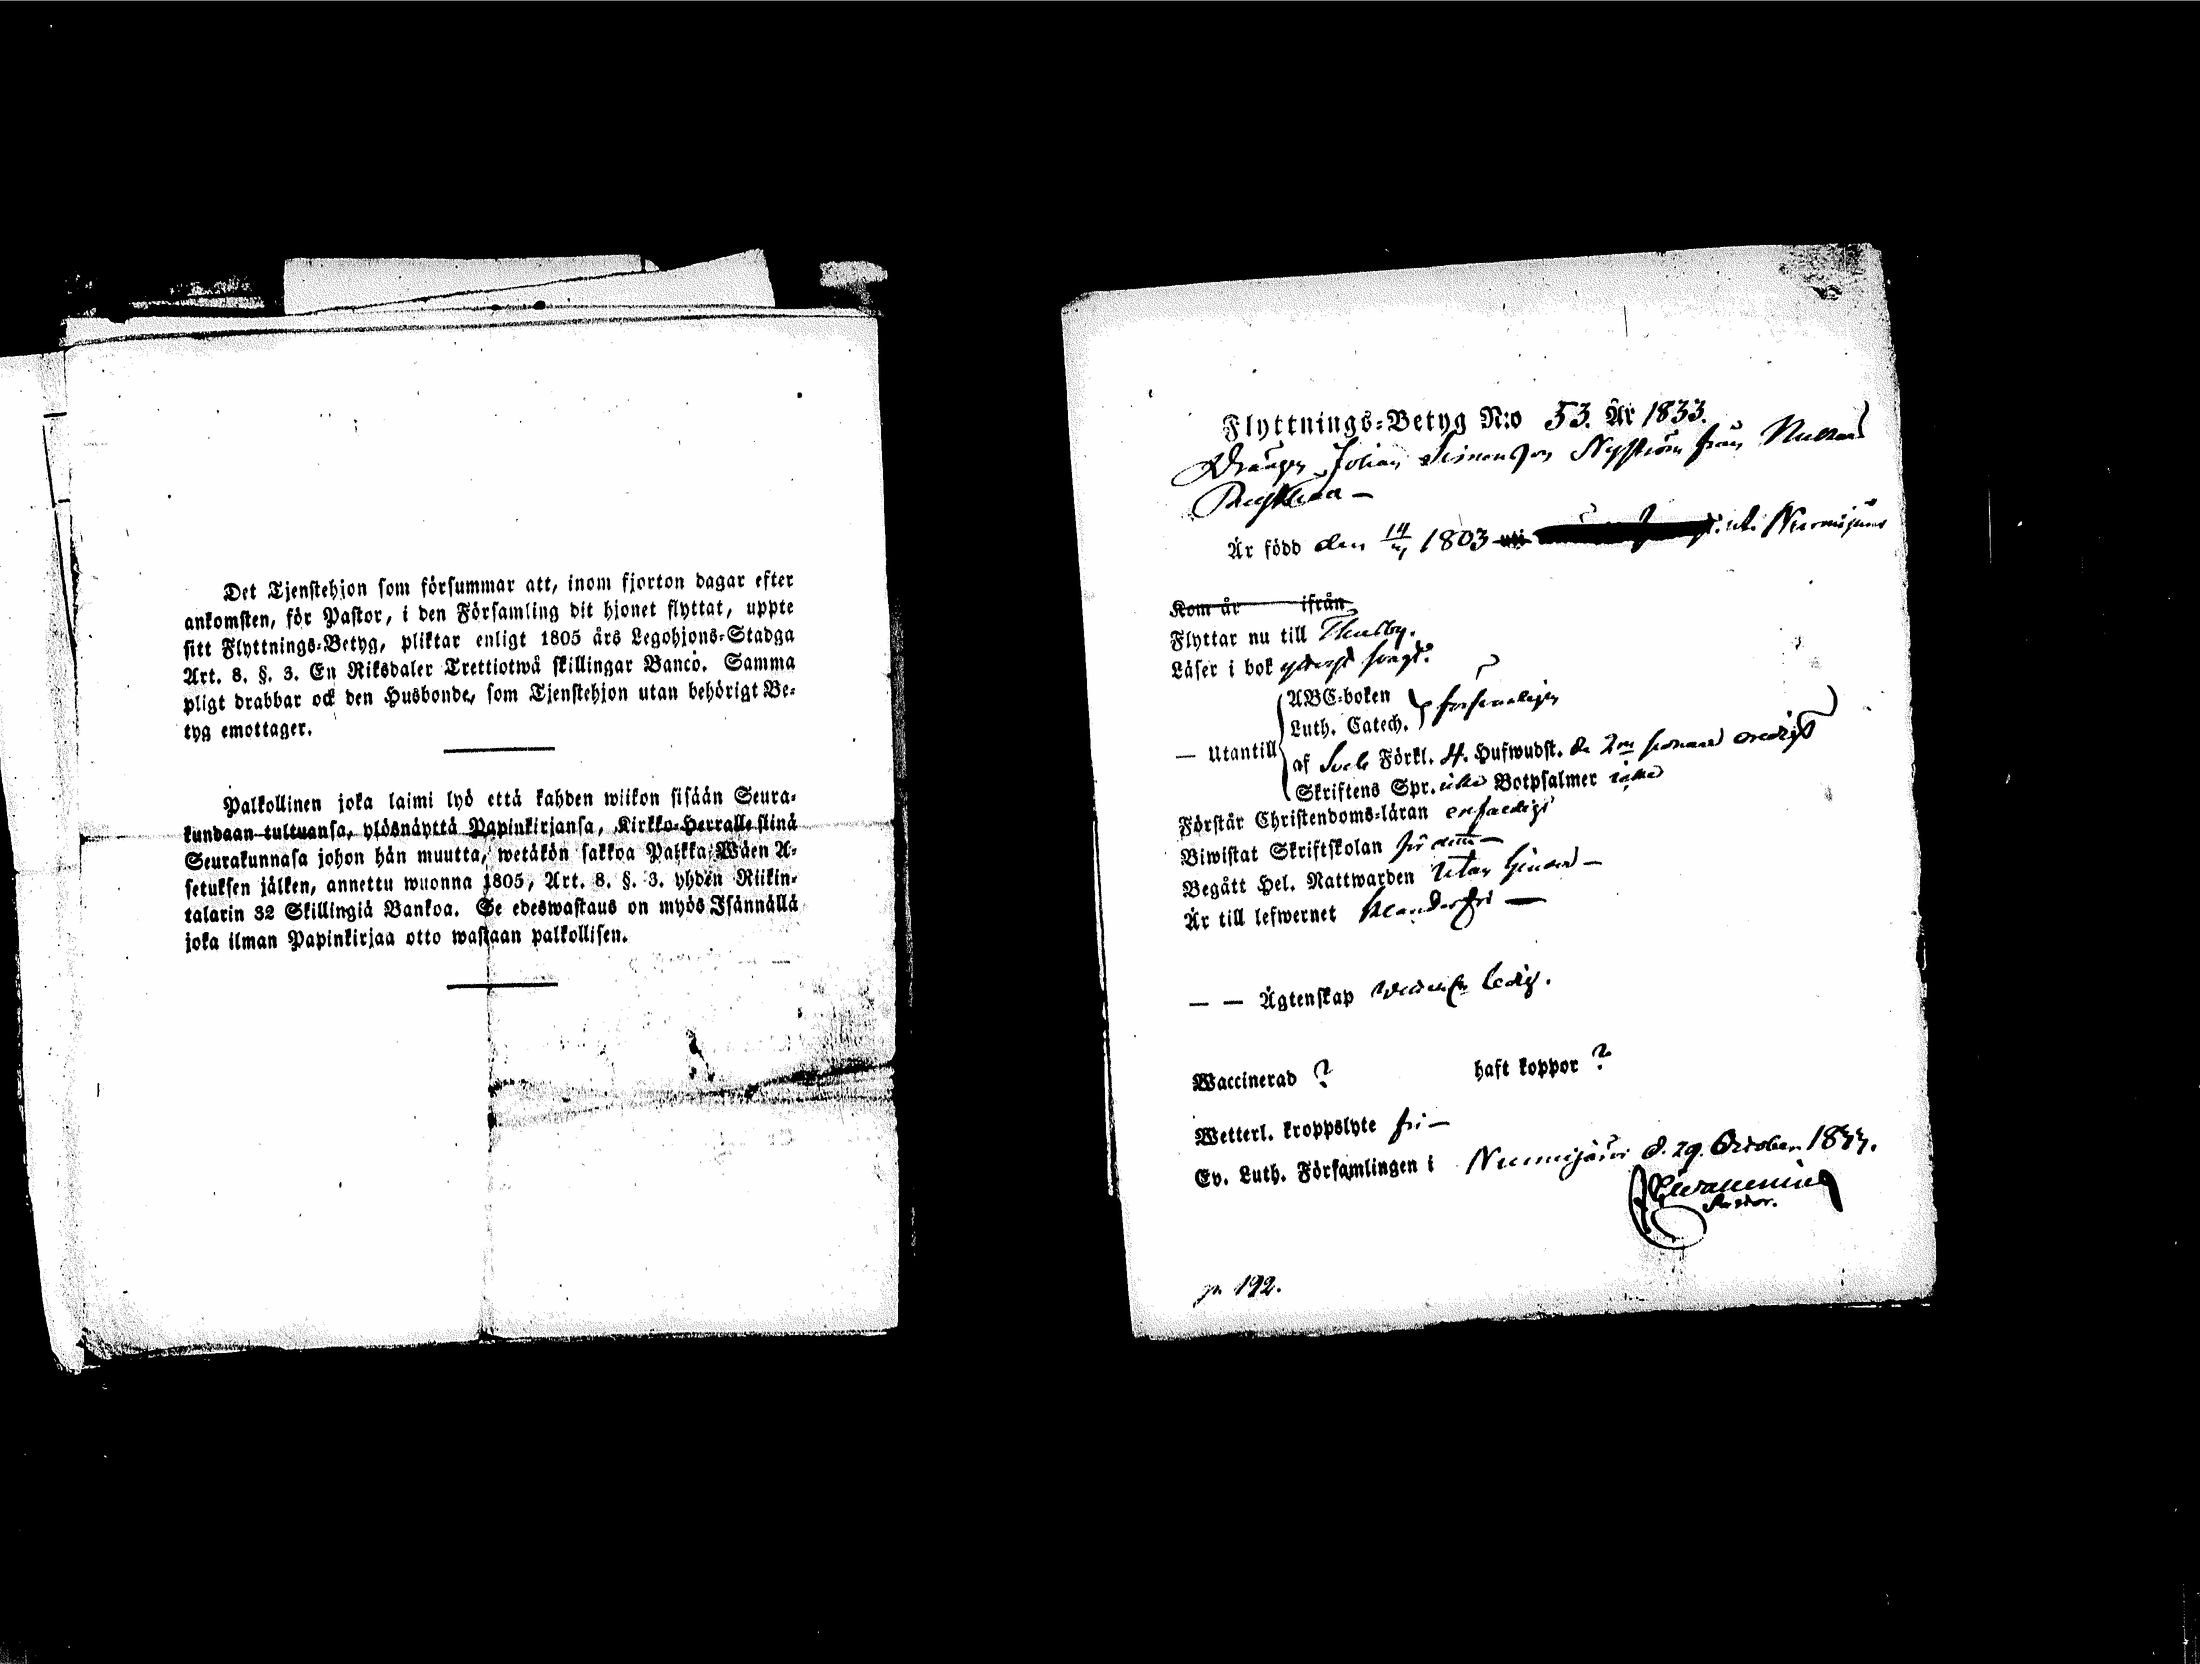 Det Tjenstehjon som försummar att, inom fjorton dagar efter
ankomsten, för Pastor, i den Församling dit hjonet flyttat, uppte
sitt Flyttnings-Betyg, pliktar enligt 1805 års Legohjons-Stadga
Art. 8. §. 3. En Riksdaler Trettiotwå skillingar Banco. Samma
pligt drabbar ock den Husbonde, som Tjenstehjon utan behörigt Be-
tyg emottager.
Palkollinen joka laimi lyö että kahden wiikon sisään Seura-
kundaan tultuansa, ylösnäyttä Papinkirjansa, Kirkko-Herralle siinä
Seurakunnasa johon hän muutta, wetäkön sakkoa Palkka-Wäen A-
setuksen jälken, annettu wuonna 1805, Art. 8. §. 3. yhden Riikin-
talarin 32 Skillingiä Bankoa. Se edeswastaus on myös Isännällä
joka ilman Papinkirjaa otto wastaan palkollisen.
Flyttnings-Betyg N:o 53. År 1833.
Drängen Johan Simonsson Nyström från
Är född den 14/ 1803 uti Nurmijärvi
Kom år ifrån
Flyttar nu till Thusby.
Läser i bok swagt.
ABC-boken
Luth. Catech. försvarligen
— Utantill
af Sveb. Förkl. 4. Hufwudst. de 2ne
Skriftens Spr. icke Botpsalmer icke
Förstår Christendoms-läran enfaldigt
Biwistat Skriftskolan för detta —
Begått Hel. Nattwarden utan hinder —
Är till lefwernet klanderfri —
— — Ägtenskap ledig.
Waccinerad ? haft koppor ?
Wetterl. kroppslyte fri —
Ev. Luth. Församlingen i Nurmijärvi d. 29. October 1833.
Pastor.
p. 192.